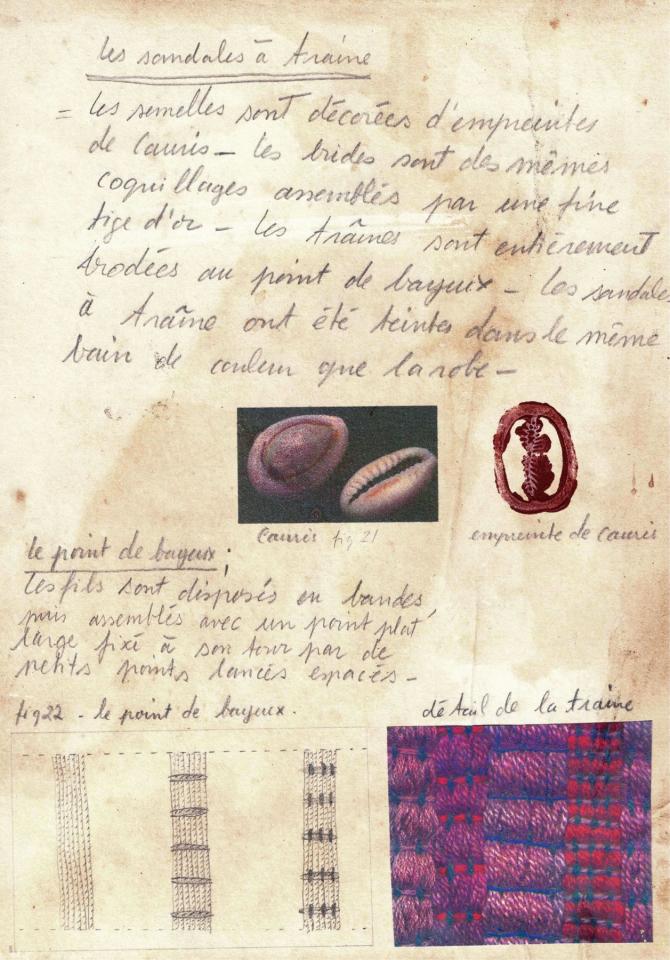 les sandales à traîne
= les semelles sont décorées d'empreintes
de Cauris – les brides sont des mêmes
coquillages assemblés par une fine
tige d'or – les traînes sont entièrement
brodées au point de bayeux – les sandales
à traîne ont été teintes dans le même
bain de couleur que la robe –
Cauris fig 21
empreinte de Cauris
le point de bayeux :
les fils sont disposés en bandes,
puis assemblés avec un point plat
large fixé à son tour par de
petits points lancés espacés –
fig 22 - le point de bayeux.
détail de la traîne